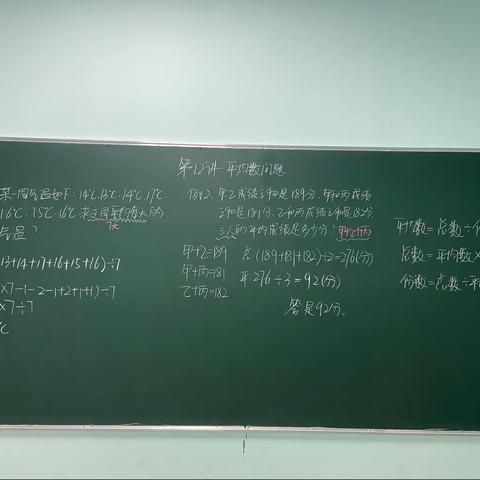 第12讲 平均数问题
某一周气温如下：14℃.13℃.14℃.17℃
16℃.15℃.16℃.求这周平均每天的
7天
气温？
13+14+17+16+15+16)÷7
×7-1-2-1+2+1+1)÷7
×7÷7
℃
例2.甲乙成绩之和是189分.甲和丙成绩
之和是181分.乙和丙成绩之和是182分
三人的平均成绩是多少分？甲+乙+丙
甲+乙=189
甲+丙=181
乙+丙=182
总:(189+181+182)÷2=276(分)
平:276÷3=92(分)
答是92分.
平均数=总数÷份
总数=平均数×
份数=总数÷平